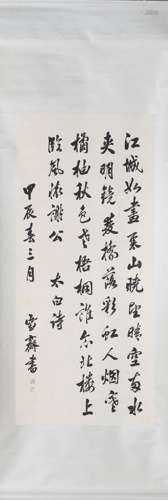 江城如畫裏山曉望晴空兩水
夾明鏡雙橋落彩虹人烟寒
橘柚秋色老梧桐誰念北樓上
臨風懷謝公 太白诗
甲辰春三月
雪齋書